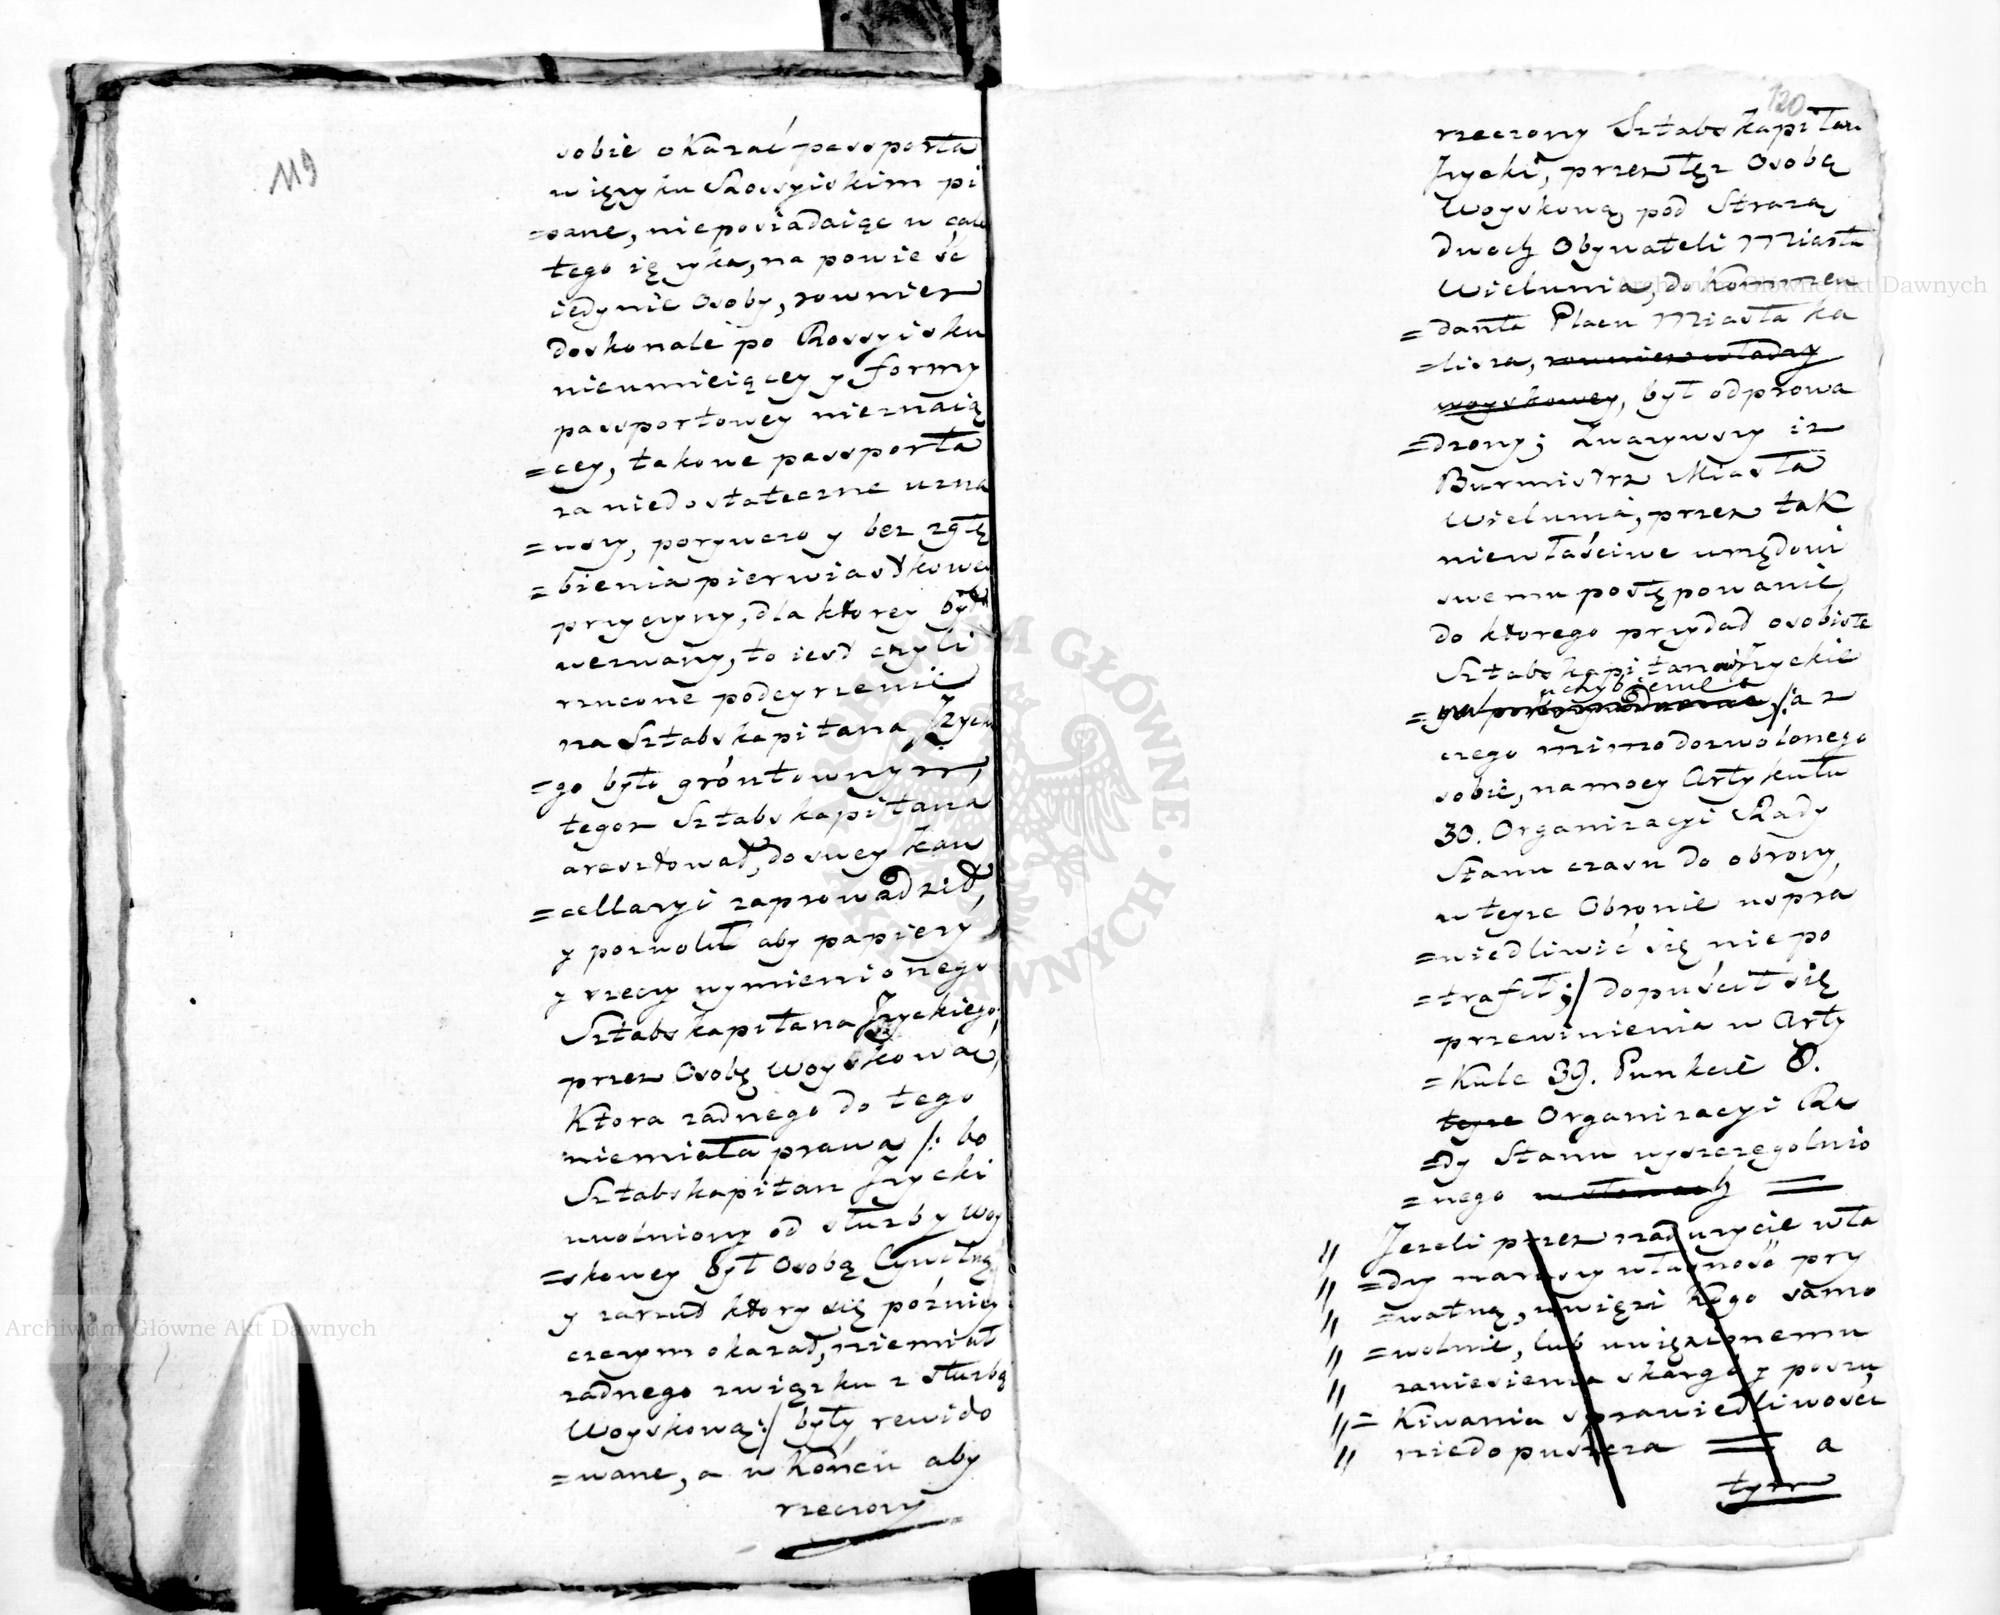 119
sobie okazać passporta
w ięzyku Rossyiskim pi
=sane, nieposiadaiąc w cale
tego ięzyka, na powieść
iedynie Osoby, rownież
doskonale po Rossyisku
nieumieiącey y formy
passportowey nieznaią
=cey, takowe passporta
za niedostateczne uzna
=wszy, porywczo y bez zgłę
=bienia pierwiastkowey
przyczyny, dla ktorey był
wezwany, to iest czyli
rzucone podeyrzenie
na Sztabskapitana Jżyckie
=go było gróntownym,
tegoż Sztabskapitana
aresztował, do swey kan
=cellaryi zaprowadził,
y pozwolił aby papiery
y rzeczy wymienionego
Sztabskapitana Jżyckiego,
przez Osobę Woyskową,
Ktora żadnego do tego
niemiała prawa /: bo
Sztabskapitan Jżycki
uwolniony od służby Woy
=skowey był Osobą Cywilną
y zarzut ktory się późniey
czczym okazał, niemiał
żadnego związku z służbą
Woyskową :/ były rewido
=wane, a w końcu aby
rzeczony
120
rzeczony Sztabskapitan
Jżycki, przez tęż Osobę
Woyskową, pod Strażą
dwoch Obywateli Miasta
Wielunia, do Kommen
=danta Placu Miasta Ka
=lisza, rownież władzy
woyskowey, był odprowa
=dzony; Zważywszy iż
Burmistrz Miasta
Wielunia, przez tak
niewłaściwe urzędowi
swemu postępowanie,
do ktorego przydał osobiste
Sztabskapitanowi Jżyckie
uchybienie
=mu /: a z
czego mimo dozwolonego
sobie, na mocy Artykułu
30. Organizacyi Rady
Stanu czasu do obrony,
w teyże Obronie uspra
=wiedliwić się niepo
=trafił; :/ dopuścił się
przewinienia w Arty
=kule 39. Punkcie 8.
teyże Organizacyi Ra
=dy Stanu wyszczegolnio
=nego w słowach =
" Jeżeli przez nadużycie wła
" =dzy naruszy własność pry
" =watną, uwięzi kogo samo
" =wolnie, lub uwięzionemu
" zaniesienia skargi y poszu
" =kiwania sprawiedliwości
" niedopuszcza = a
tym
Archiwum Główne Akt Dawnych
Archiwum Główne Akt Dawnych
ARCHIWUM GŁÓWNE · AKT DAWNYCH ·